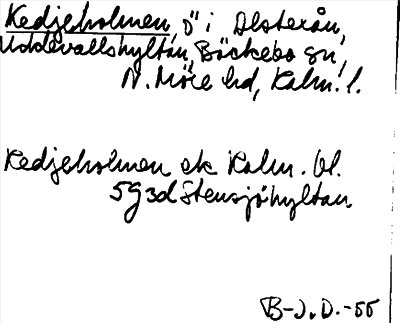 Kedjeholmen, ö i Alsterån,
Uddevallshyltan, Bäckebo sn,
N. Möre hd, Kalm. l.
Kedjeholmen ek Kalm. bl.
5G3d Stensjöhyltan.
B-J.D.-55